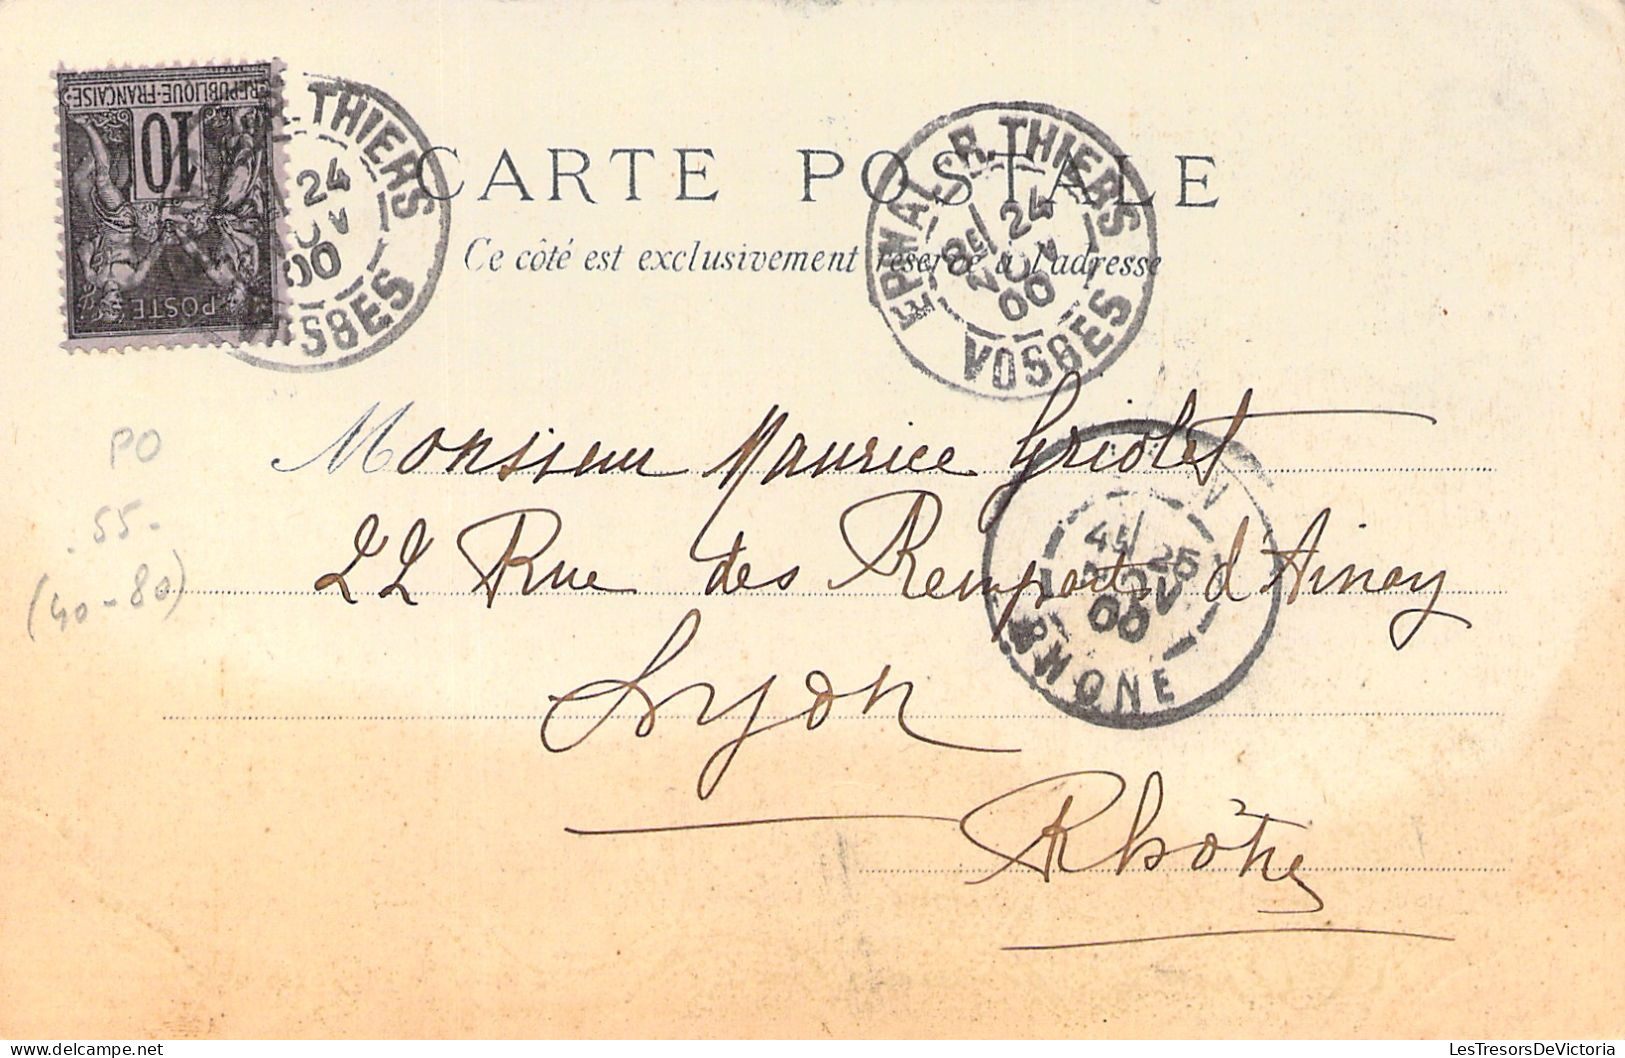 RÉPUBLIQUE-FRANÇAISE
10
POSTE
R. THIERS
24
00
VOSGES
CARTE POSTALE
Ce côté est exclusivement réservé à l'adresse
EPINAL SR. THIERS
8E/ 24
NOV
00
VOSGES
Monsieur Maurice Griolet
22 Rue des Remparts d'Ainay
Lyon
Rhône
25
NOV
00
RHONE
PO
.55-
(40-80)
LesTresorsDeVictoria